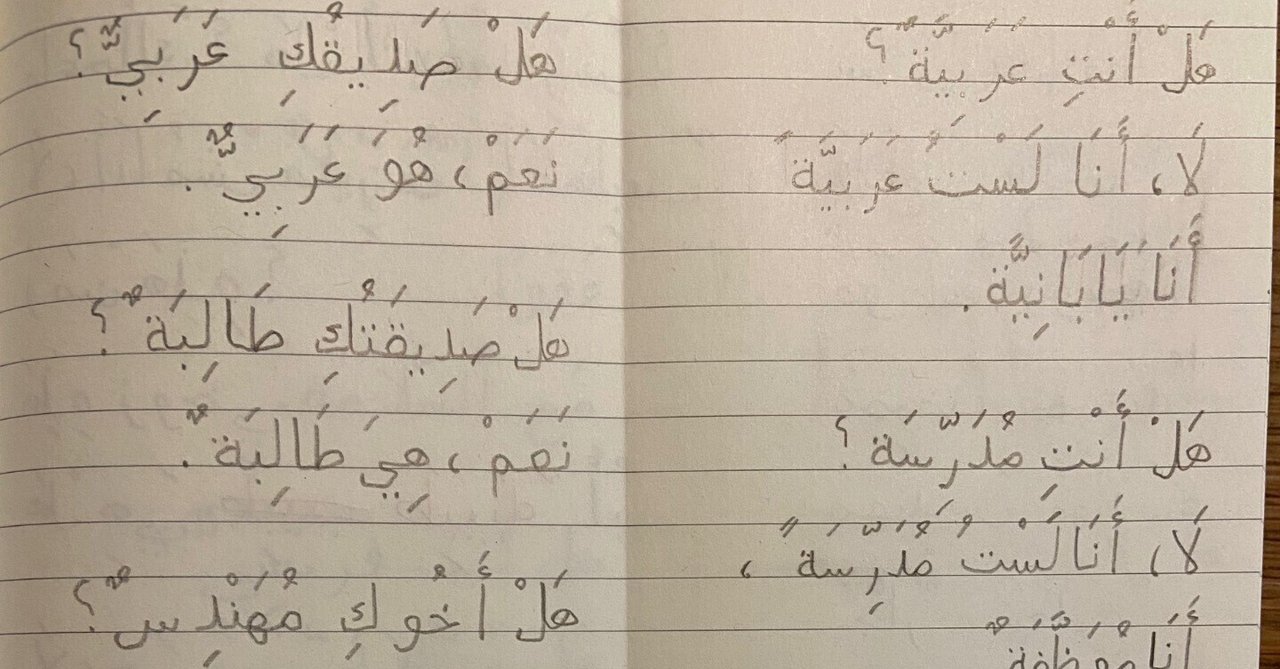 هَلْ أَنْتِ عَرَبِيَّةٌ؟
لَا، أَنَا لَسْتُ عَرَبِيَّةً
أَنَا يَابَانِيَّةٌ.
هَلْ أَنْتِ مُدَرِّسَةٌ؟
لَا، أَنَا لَسْتُ مُدَرِّسَةً،
أَنَا مُوَظَّفَةٌ
هَلْ صَدِيقُكِ عَرَبِيٌّ؟
نَعَم، هُوَ عَرَبِيٌّ.
هَلْ صَدِيقَتُكِ طَالِبَةٌ؟
نَعَم، هِيَ طَالِبَةٌ.
هَلْ أَخُوكِ مُهَنْدِسٌ؟